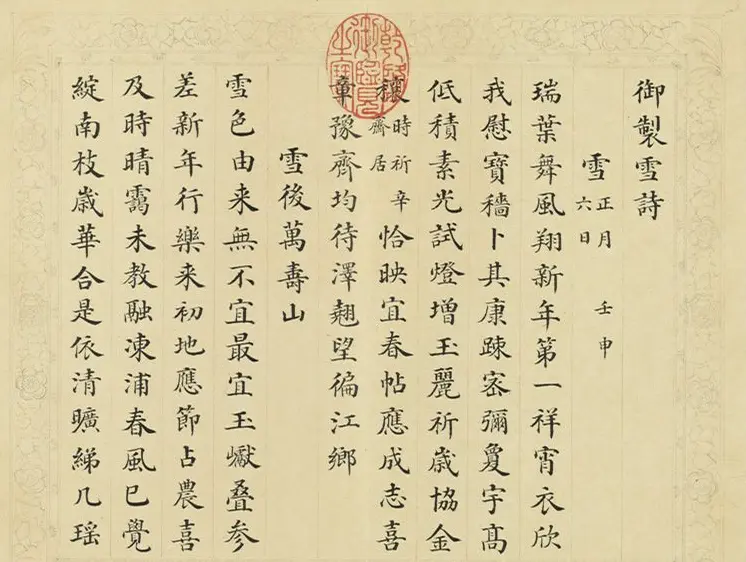 御製雪詩
雪 正月六日 壬申
瑞葉舞風翔新年第一祥宵衣欣
我慰寶穡卜其康踈宻彌敻宇髙
低積素光試燈增玉麗祈歳協金
穰時祈辛齊居恰映宜春帖應成志喜
章豫齊均待澤翹望徧江鄉
雪後萬壽山
雪色由来無不宜最宜玉巘叠参
差新年行樂来初地應節占農喜
及時晴靄未教融凍浦春風已覺
綻南枝歳華合是依清曠綈几瑶
乾隆御覽之寶